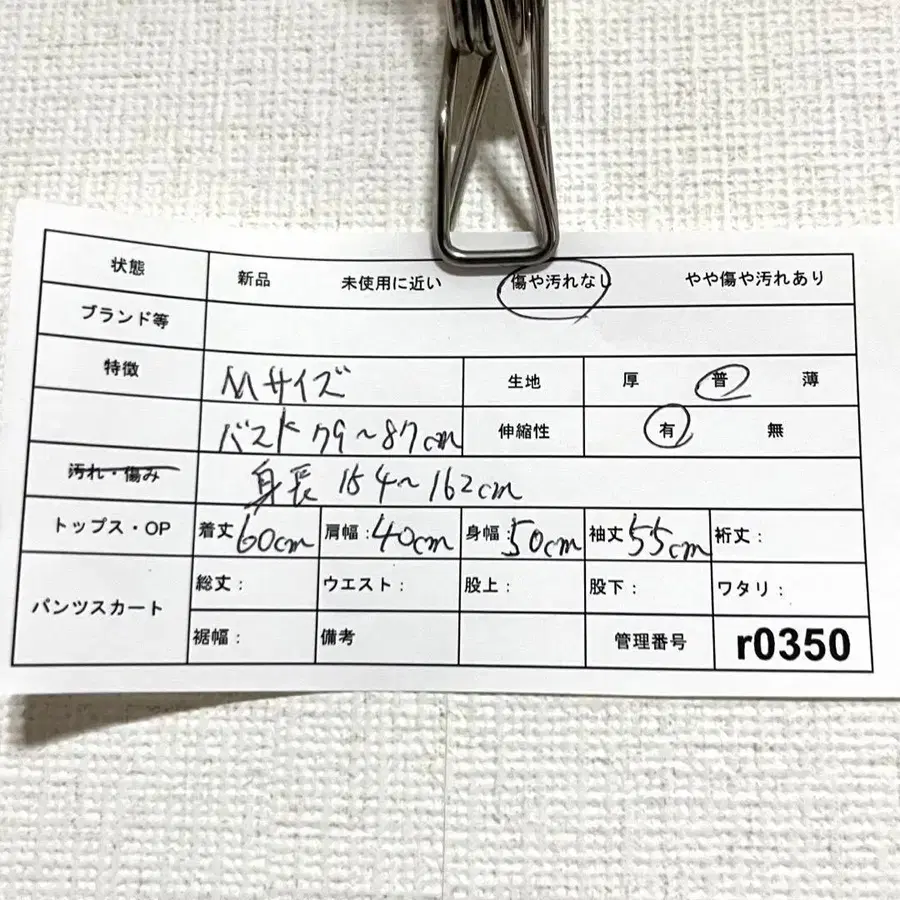 状態 新品 未使用に近い 傷や汚れなし やや傷や汚れあり
ブランド等
特徴 Mサイズ 生地 厚 普 薄
バスト79~87cm 伸縮性 有 無
汚れ・傷み 身長154~162cm
トップス・OP 着丈60cm 肩幅:40cm 身幅:50cm 袖丈55cm 裄丈:
パンツスカート 総丈: ウエスト: 股上: 股下: ワタリ:
裾幅: 備考 管理番号 r0350